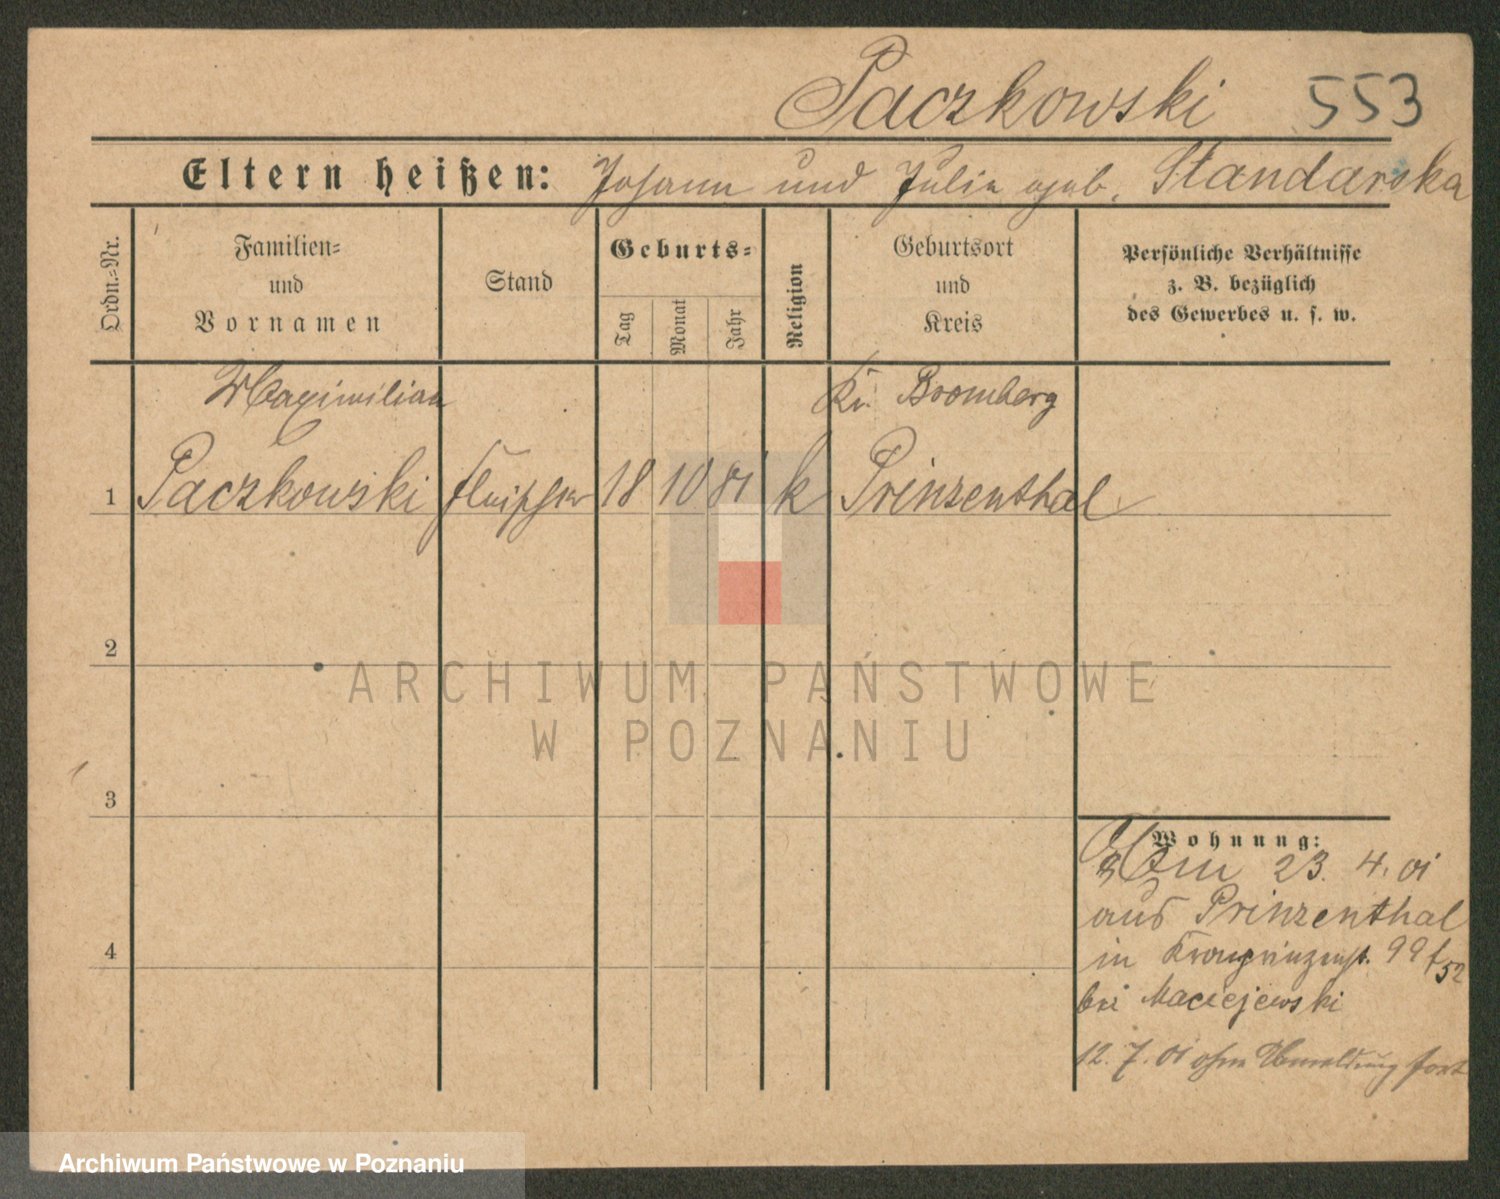 Paczkowski 553
Eltern heißen: Johann und Julia geb. Standarska
Ordn.-Nr.
Familien- und Vornamen
Stand
Geburts-
Tag
Monat
Jahr
Religion
Geburtsort und Kreis
Persönliche Verhältnisse
z. B. bezüglich
des Gewerbes u. s. w.
Maximilian Kr. Bromberg
1 Paczkowski Fleischer 18 10 81 k Prinzenthal
2
3
4
Wohnung:
23. 4. 01
aus Prinzenthal
in Kronprinzenst. 99
bei Maciejewski
12. 7. 01 ohne Abmeldung fort
ARCHIWUM PAŃSTWOWE
W POZNANIU
Archiwum Państwowe w Poznaniu